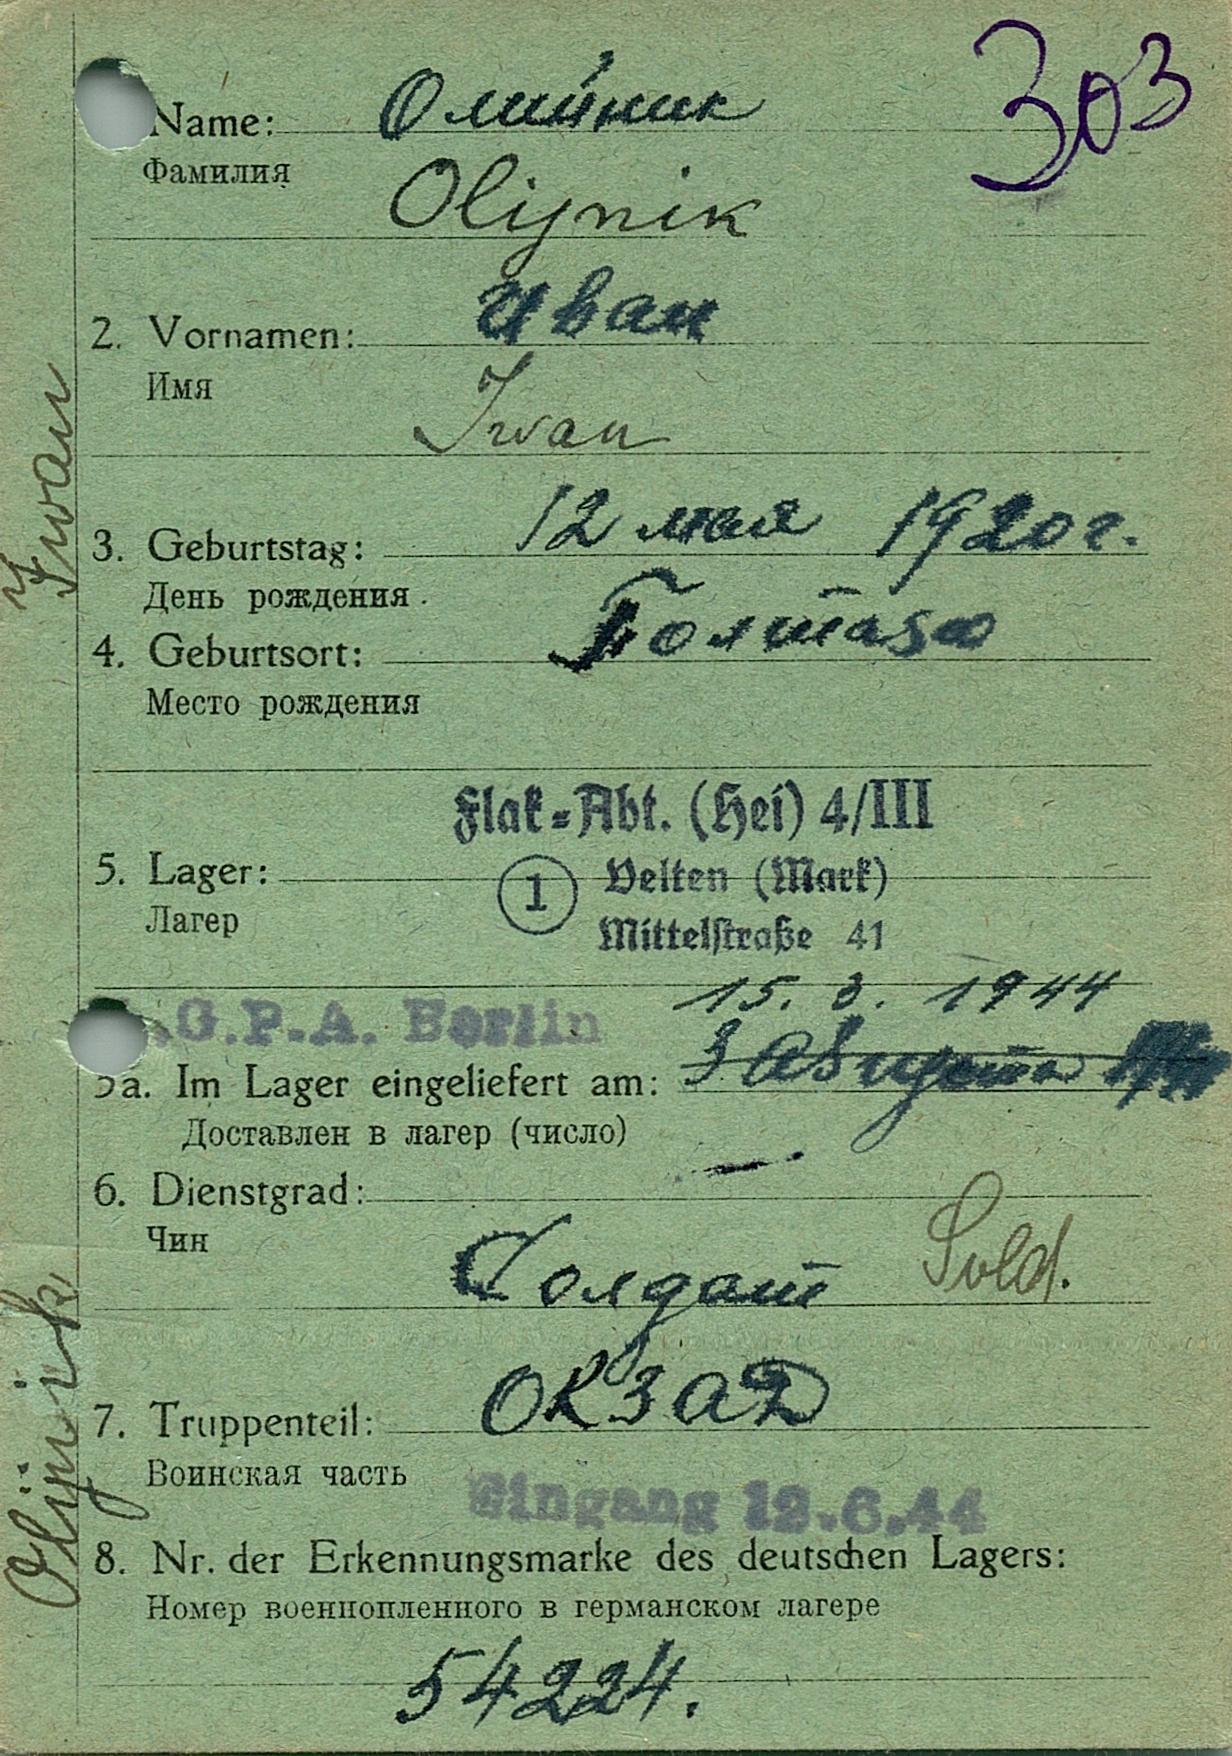 303
Name: Олийник
Фамилия
Olijnik
2. Vornamen: Иван
Имя
Iwan
3. Geburtstag: 12 мая 1920 г.
День рождения
4. Geburtsort: Полтава
Место рождения
Flak-Abt. (Hei) 4/III
5. Lager: 1 Velten (Mark)
Лагер
Mittelstraße 41
15. 3. 1944
.G.P.A. Berlin
5a. Im Lager eingeliefert am: 3 августа
Доставлен в лагер (число)
6. Dienstgrad: —
Чин
Солдат Sold.
7. Truppenteil: ОКЗАД
Воинская часть
Eingang 12.6.44
8. Nr. der Erkennungsmarke des deutschen Lagers:
Номер военнопленного в германском лагере
54224.
Olijnik Iwan